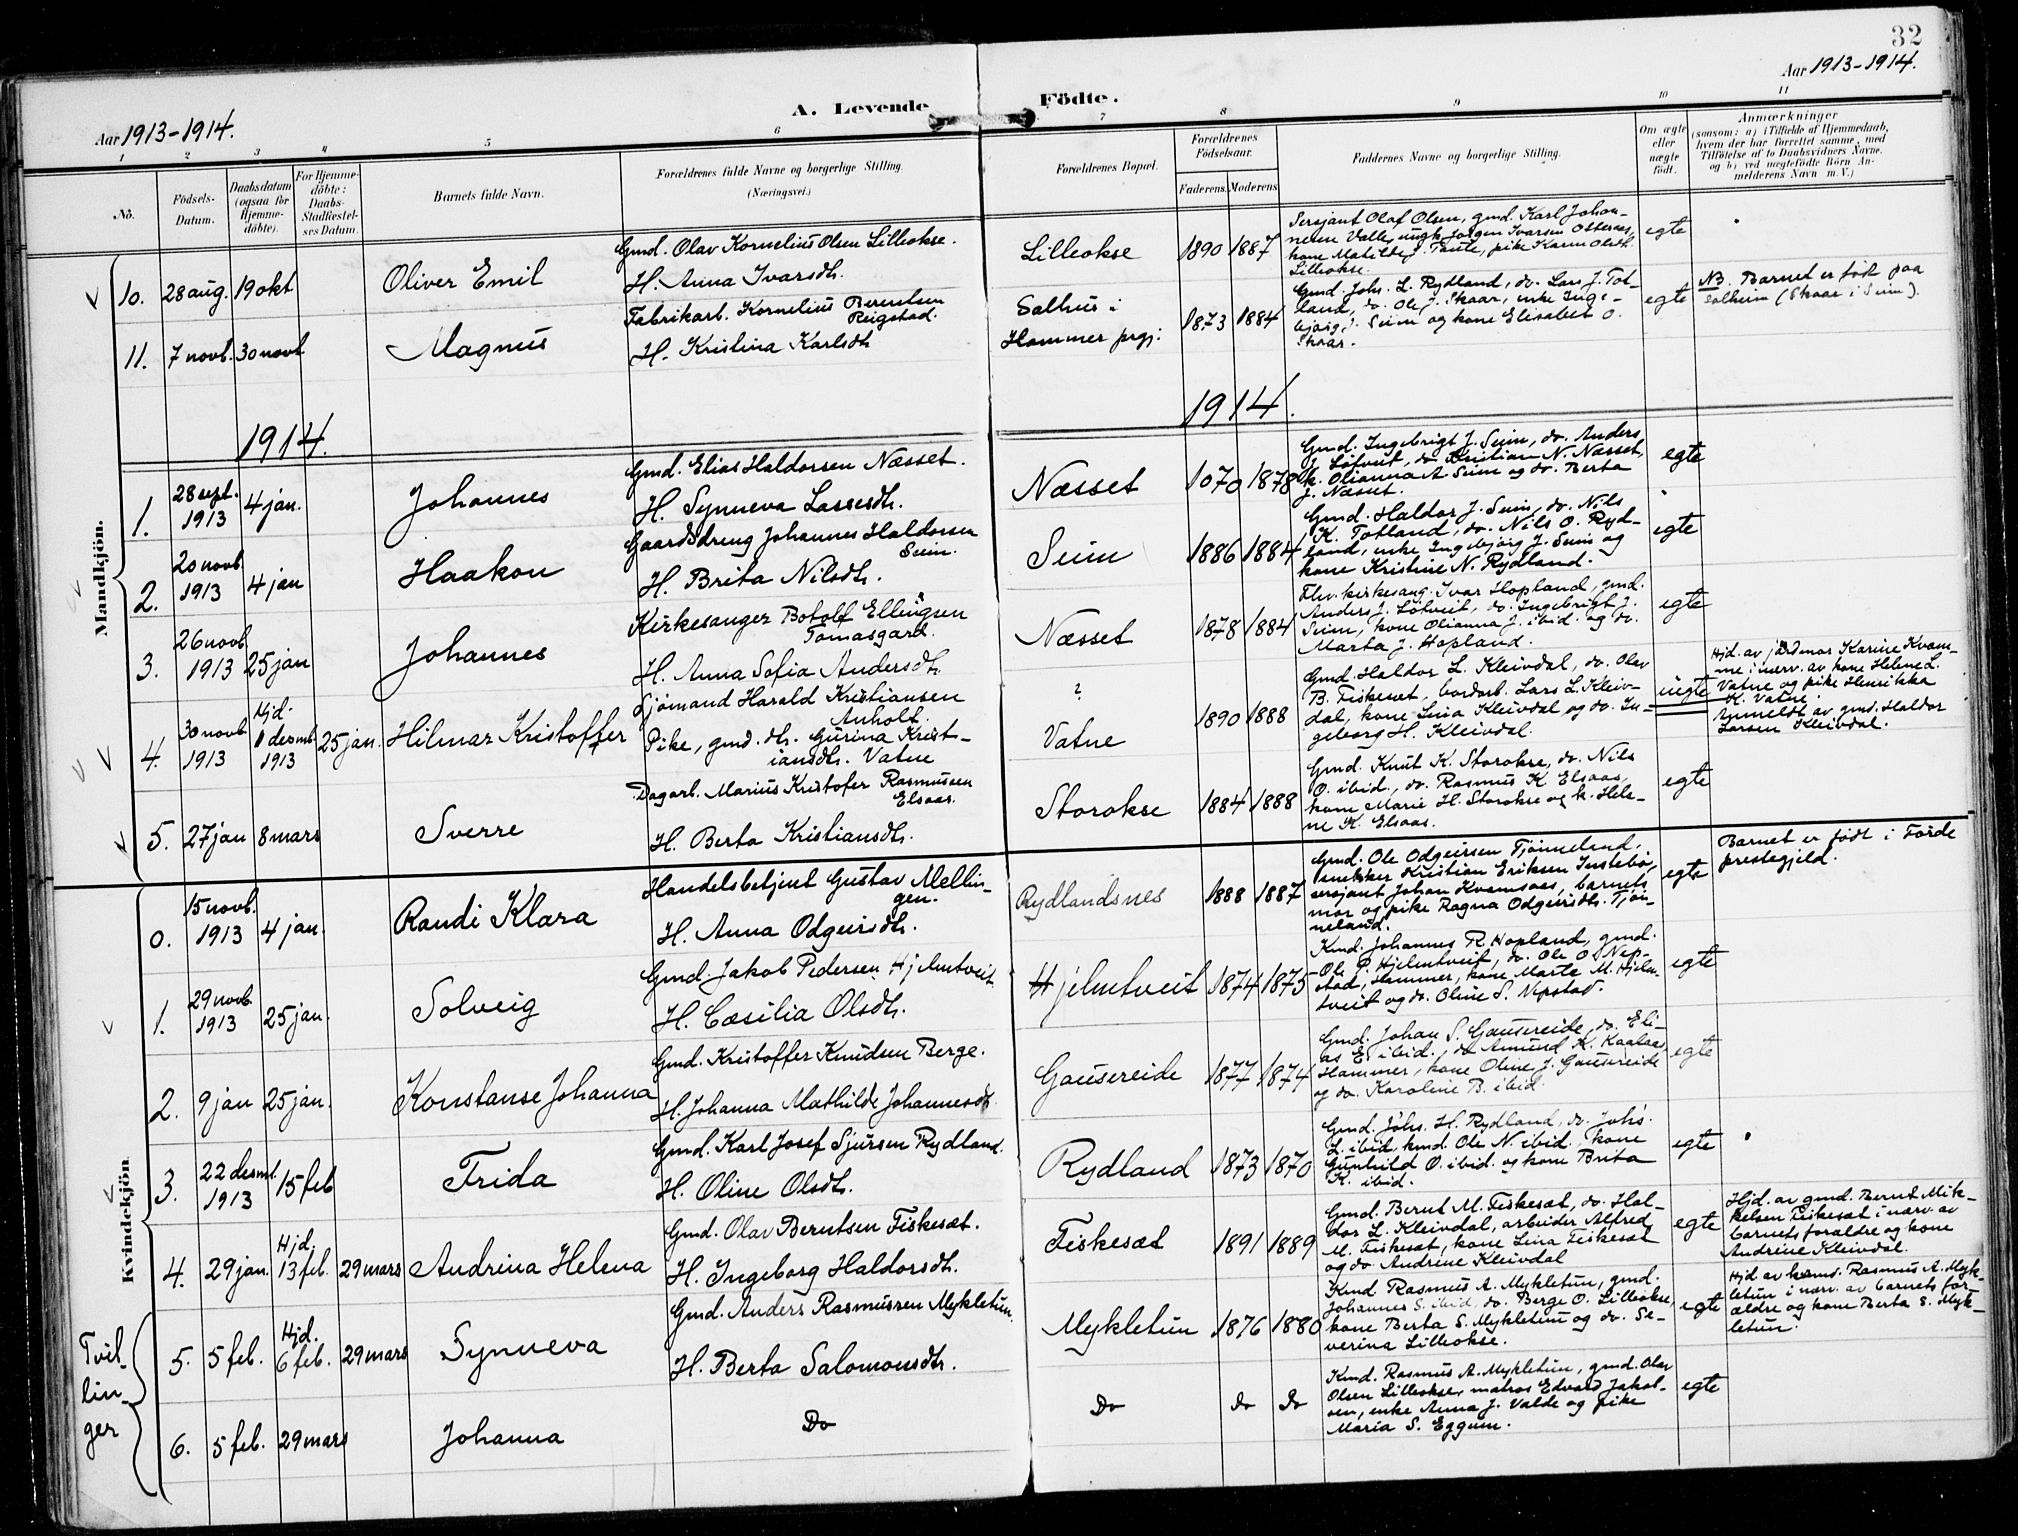 32
Aar 1913-1914.
Aar 1913-1914.
A. Levende Födte.
1 2 3 4 5 6 7 8 9 10 11
No.
Födsels-
Datum.
Daabsdatum
(ogsaa for
Hjemme-
döbte).
For Hjemme-
döbte:
Daabs-
Stadfæstel-
ses Datum.
Barnets fulde Navn.
Forældrenes fulde Navne og borgerlige Stilling.
(Næringsvei.)
Forældrenes Bopæl.
Forældrenes
Födselsaar.
Faderens. Moderens
Faddernes Navne og borgerlige Stilling.
Om ægte
eller
uægte
födt.
Anmærkninger
(saasom: a) i Tilfælde af Hjemmedaab,
hvem der har forrettet samme, med
Tilföielse af to Daabsvidners Navne,
og b) ved uægtefödte Börn An-
melderens Navn m. V.)
Mandkjön.
10. 28 aug. 19 okt
Oliver Emil
Gmd. Olav Kornelius Olsen Lilleokse.
H. Anna Ivarsdtr.
Lilleokse
1890 1887
Sersjant Olaf Olsen, gmd. Karl Johan-
nesen Valle, ungk. Jörgen Ivarsen
kone Matilde J. Taule, pike Karen Olsdt.
Lilleokse.
egte
11. 7 novb. 30 novb
Magnus
Fabrikarb. Kornelius Berentsen
Reigstad.
H. Kristina Karlsdtr
Salhus i
Hammer prgj:
1873 1884
Gmd. Johs. L. Rydland, do. Lars J. Tot-
land, do. Ole J. Skaar, enke Inge-
bjørg J. Seim og kone Elisabet O.
Skaar.
egte
NB. Barnet er född paa
Solheim (Skaar i Seim).
1914.
1914.
1. 28 sept. 1913 4 jan.
Johannes
Gmd. Elias Haldorsen Næsset.
H. Synneva Lassesdtr.
Næsset
1070 1878
Gmd. Ingebrigt J. Seim, do. Anders
J. Löfveit, do. Kristian N. Næsset,
k. Olianna A. Seim og do. Berta
J. Næsset.
egte
2. 20 novb. 1913 4 jan
Haakon
Gaardsdreng Johannes Haldorsen
Seim.
H. Brita Nilsdtr.
Seim
1886 1884
Gmd. Haldor J. Seim, do. Nils
K. Totland, do. Nils O. Ryd-
land, enke Ingebjørg J. Seim og
kone Kristine N. Rydland.
egte
3. 26 novb 1913 25 jan
Johannes
Kirkesanger Botolf Ellingsen
Tomasgard.
H. Anna Sofia Andersdtr.
Næsset
1878 1884
Fhv. kirkesang. Ivar Hopland, gmd.
Anders J. Lötveit, do. Ingebrigt J.
Seim, kone Olianna J. ibid. og do.
Marta J. Hopland.
egte
4. 30 novb 1913 Hjd. 1 desmb. 1913 25 jan.
Hilmar Kristoffer
Sjömand Harald Kristiansen
Anholt.
Pike, gmd. dtr. Gurina Krist-
iansdtr. Vatne
?
Vatne
1890 1888
Gmd. Haldor L. Kleivdal, do. Olav
B. Fiskesæt, bordarb. Lars L. Kleiv-
dal, kone Lina Kleivdal og do. In-
geborg H. Kleivdal.
uegte
Hjd. av jordmor Karine Kvam-
me i nærv. av kone Helene L.
Vatne og pike Henrikka
K. Vatne.
Anmeldt av gmd. Haldor
Larsen Kleivdal.
5. 27 jan 8 mars
Sverre
Dagarb. Marius Kristofer Rasmussen
Elsaas.
H. Berta Kristiansdtr.
Storokse
1884 1888
Gmd. Knut K. Storokse, do. Nils
O. ibid., do. Rasmus K. Elsaas,
kone Marie H. Storokse og k. Hele-
ne K. Elsaas.
egte
Kvindekjön
0. 15 novb. 1913 4 jan.
Randi Klara
Handelsbetjent Gustav Mellin-
gen.
H. Anna Odgeirsdtr.
Rydlandsnes
1888 1887
Gmd. Ole Odgeirsen Tjönneland,
snekker Kristian Eriksen Instebö,
sersjant Johan Kvamsaas, barnets
mor og pike Ragna Odgeirsdtr. Tjön-
neland.
egte
Barnet er född i Förde
prestegjeld.
1. 29 novb. 1913 25 jan.
Solveig
Gmd. Jakob Pedersen Hjelmtveit
H. Cæsilia Olsdtr.
Hjelmtveit
1874 1875
Kmd. Johannes R. Hopland, gmd.
Ole P. Hjelmtveit, do. Ole O. Nep-
stad, Hammer, kone Marta M. Hjelm-
tveit og do. Oline S. Nepstad.
egte
2. 9 jan 25 jan.
Konstanse Johanna
Gmd. Kristoffer Knudsen Berge.
H. Johanna Mathilde Johannesdtr
Gausereide
1877 1874
Gmd. Johan S. Gausereide, do. Eli-
as E. ibid., do Amund K. Kaalaas,
Hammer, kone Oline J. Gausereide
og do. Karoline B. ibid.
egte
3. 22 desmb. 1913 15 feb
Frida
Gmd. Karl Josef Sjursen Rydland.
H. Oline Olsdtr.
Rydland
1873 1870
Gmd. Johs. H. Rydland, do. Johs.
L. ibid, kmd. Ole N. ibid., kone
Gunhild O. ibid. og kone Brita
K. ibid.
egte
4. 29 jan. Hjd. 13 feb. 29 mars
Andrina Helena
Gmd. Olav Berntsen Fiskesæt.
H. Ingeborg Haldorsdtr.
Fiskesæt
1891 1889
Gmd. Bernt M. Fiskesæt, do. Hal-
dor L. Kleivdal, arbeider Alfred
M. Fiskesæt, kone Lina Fiskesæt
og do. Andrine Kleivdal
egte
Hjd. av gmd. Bernt Mik-
kelsen Fiskesæt i nærv. av
barnets foraldre og kone
Andrine Kleivdal.
Tvil-
lin-
ger
5. 5 feb. Hjd. 6 feb. 29 mars
Synneva
Gmd. Anders Rasmussen Mykletun.
H. Berta Salomonsdtr.
Mykletun
1876 1880
Kmd Rasmus A. Mykletun, gmd.
Johannes S. ibid, do. Berge O. Lilleokse,
kone Berta S. Mykletun og do. Se-
verina Lilleokse.
egte
Hjd av kmd. Rasmus A. Myk-
letun i nærv. av barnets for-
ældre og kone Berta S. Myk-
letun.
6. 5 feb. 29 mars
Johanna
Do
Do
do Do
Kmd. Rasmus A. Mykletun, gmd. Olav
Olsen Lilleokse, matros Edvard Jakob-
sen, enke Anna J. Valde og pike
Maria S. Eggum.
egte